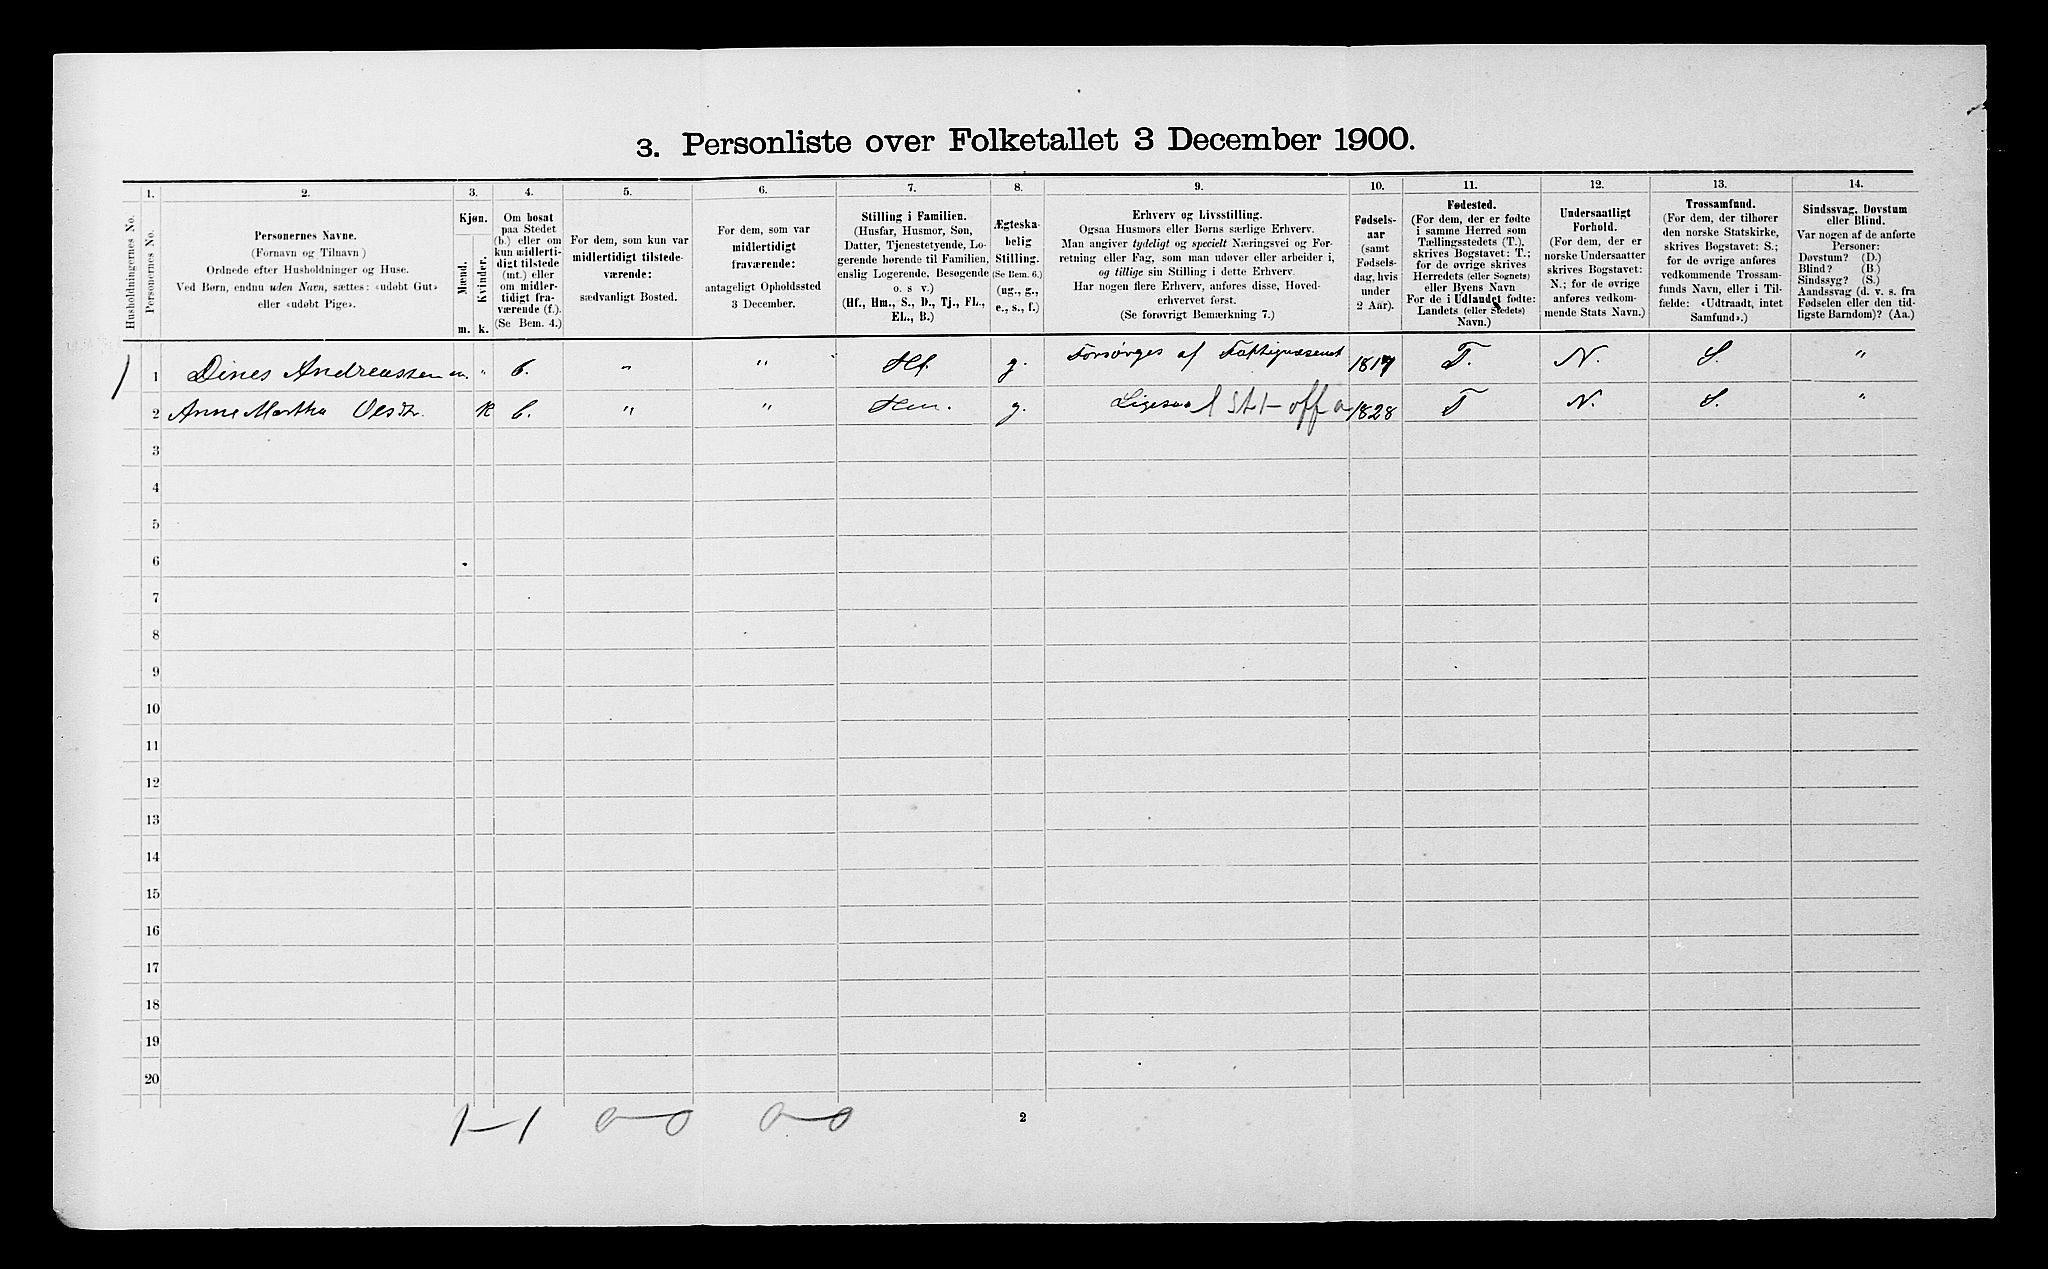 3. Personliste over Folketallet 3 December 1900.
1. 2. 3. 4. 5. 6. 7. 8. 9. 10. 11. 12. 13. 14.
Husholdningernes No.
Personernes No.
Personernes Navne.
(Fornavn og Tilnavn)
Ordnede efter Husholdninger og Huse.
Ved Børn, endnu uden Navn, sættes: «udøbt Gut»
eller «udøbt Pige».
Kjøn.
Mænd.
Kvinder.
m. k.
Om bosat
paa Stedet
(b.) eller om
kun midlerti-
digt tilstede
(mt.) eller
om midler-
tidigt fra-
værende (f.).
(Se Bem. 4.)
For dem, som kun var
midlertidigt tilstede-
værende:
sædvanligt Bosted.
For dem, som var
midlertidigt
fraværende:
antageligt Opholdssted
3 December.
Stilling i Familien.
(Husfar, Husmor, Søn,
Datter, Tjenestetyende, Lo-
gerende hørende til Familien,
enslig Logerende, Besøgende
o. s. v.)
(Hf., Hm., S., D., Tj., FL.,
EL., B.)
Ægteska-
belig
Stilling.
(Se Bem. 6.)
(ug., g.,
e., s., f.)
Erhverv og Livsstilling.
Ogsaa Husmors eller Børns særlige Erhverv.
Man angiver tydeligt og specielt Næringsvei og For-
retning eller Fag, som man udøver eller arbeider i,
og tillige sin Stilling i dette Erhverv.
Har nogen flere Erhverv, anføres disse, Hoved-
erhvervet først.
(Se forøvrigt Bemærkning 7.)
Fødsels-
aar
(samt
Fødsels-
dag, hvis
under
2 Aar).
Fødested.
(For dem, der er fødte
i samme Herred som
Tællingsstedets (T.),
skrives Bogstavet: T.;
for de øvrige skrives
Herredets (eller Sognets)
eller Byens Navn
For de i Udlandet fødte:
Landets (eller Stedets)
Navn.)
Undersaatligt
Forhold.
(For dem, der er
norske Undersaatter
skrives Bogstavet:
N.; for de øvrige
anføres vedkom-
mende Stats Navn.)
Trossamfund.
(For dem, der tilhører
den norske Statskirke,
skrives Bogstavet: S.;
for de øvrige anføres
vedkommende Trossam-
funds Navn, eller i Til-
fælde: «Udtraadt, intet
Samfund».)
Sindssvag, Døvstum
eller Blind.
Var nogen af de anførte
Personer:
Døvstum? (D.)
Blind? (B.)
Sindssyg? (S.)
Aandssvag (d. v. s. fra
Fødselen eller den tid-
ligste Barndom)? (Aa.)
1 1 Dines Andreassen m. " b. " " Hf. g. Forsørges af Fattigvæsenet 1817 T. N. S. "
2 Anne Martha Olsdtr. k b. " " Hm. g. Ligesaa 1828 T N. S. "
3
4
5
6
7
8
9
10
11
12
13
14
15
16
17
18
19
20
1-1 0-0 0-0 2